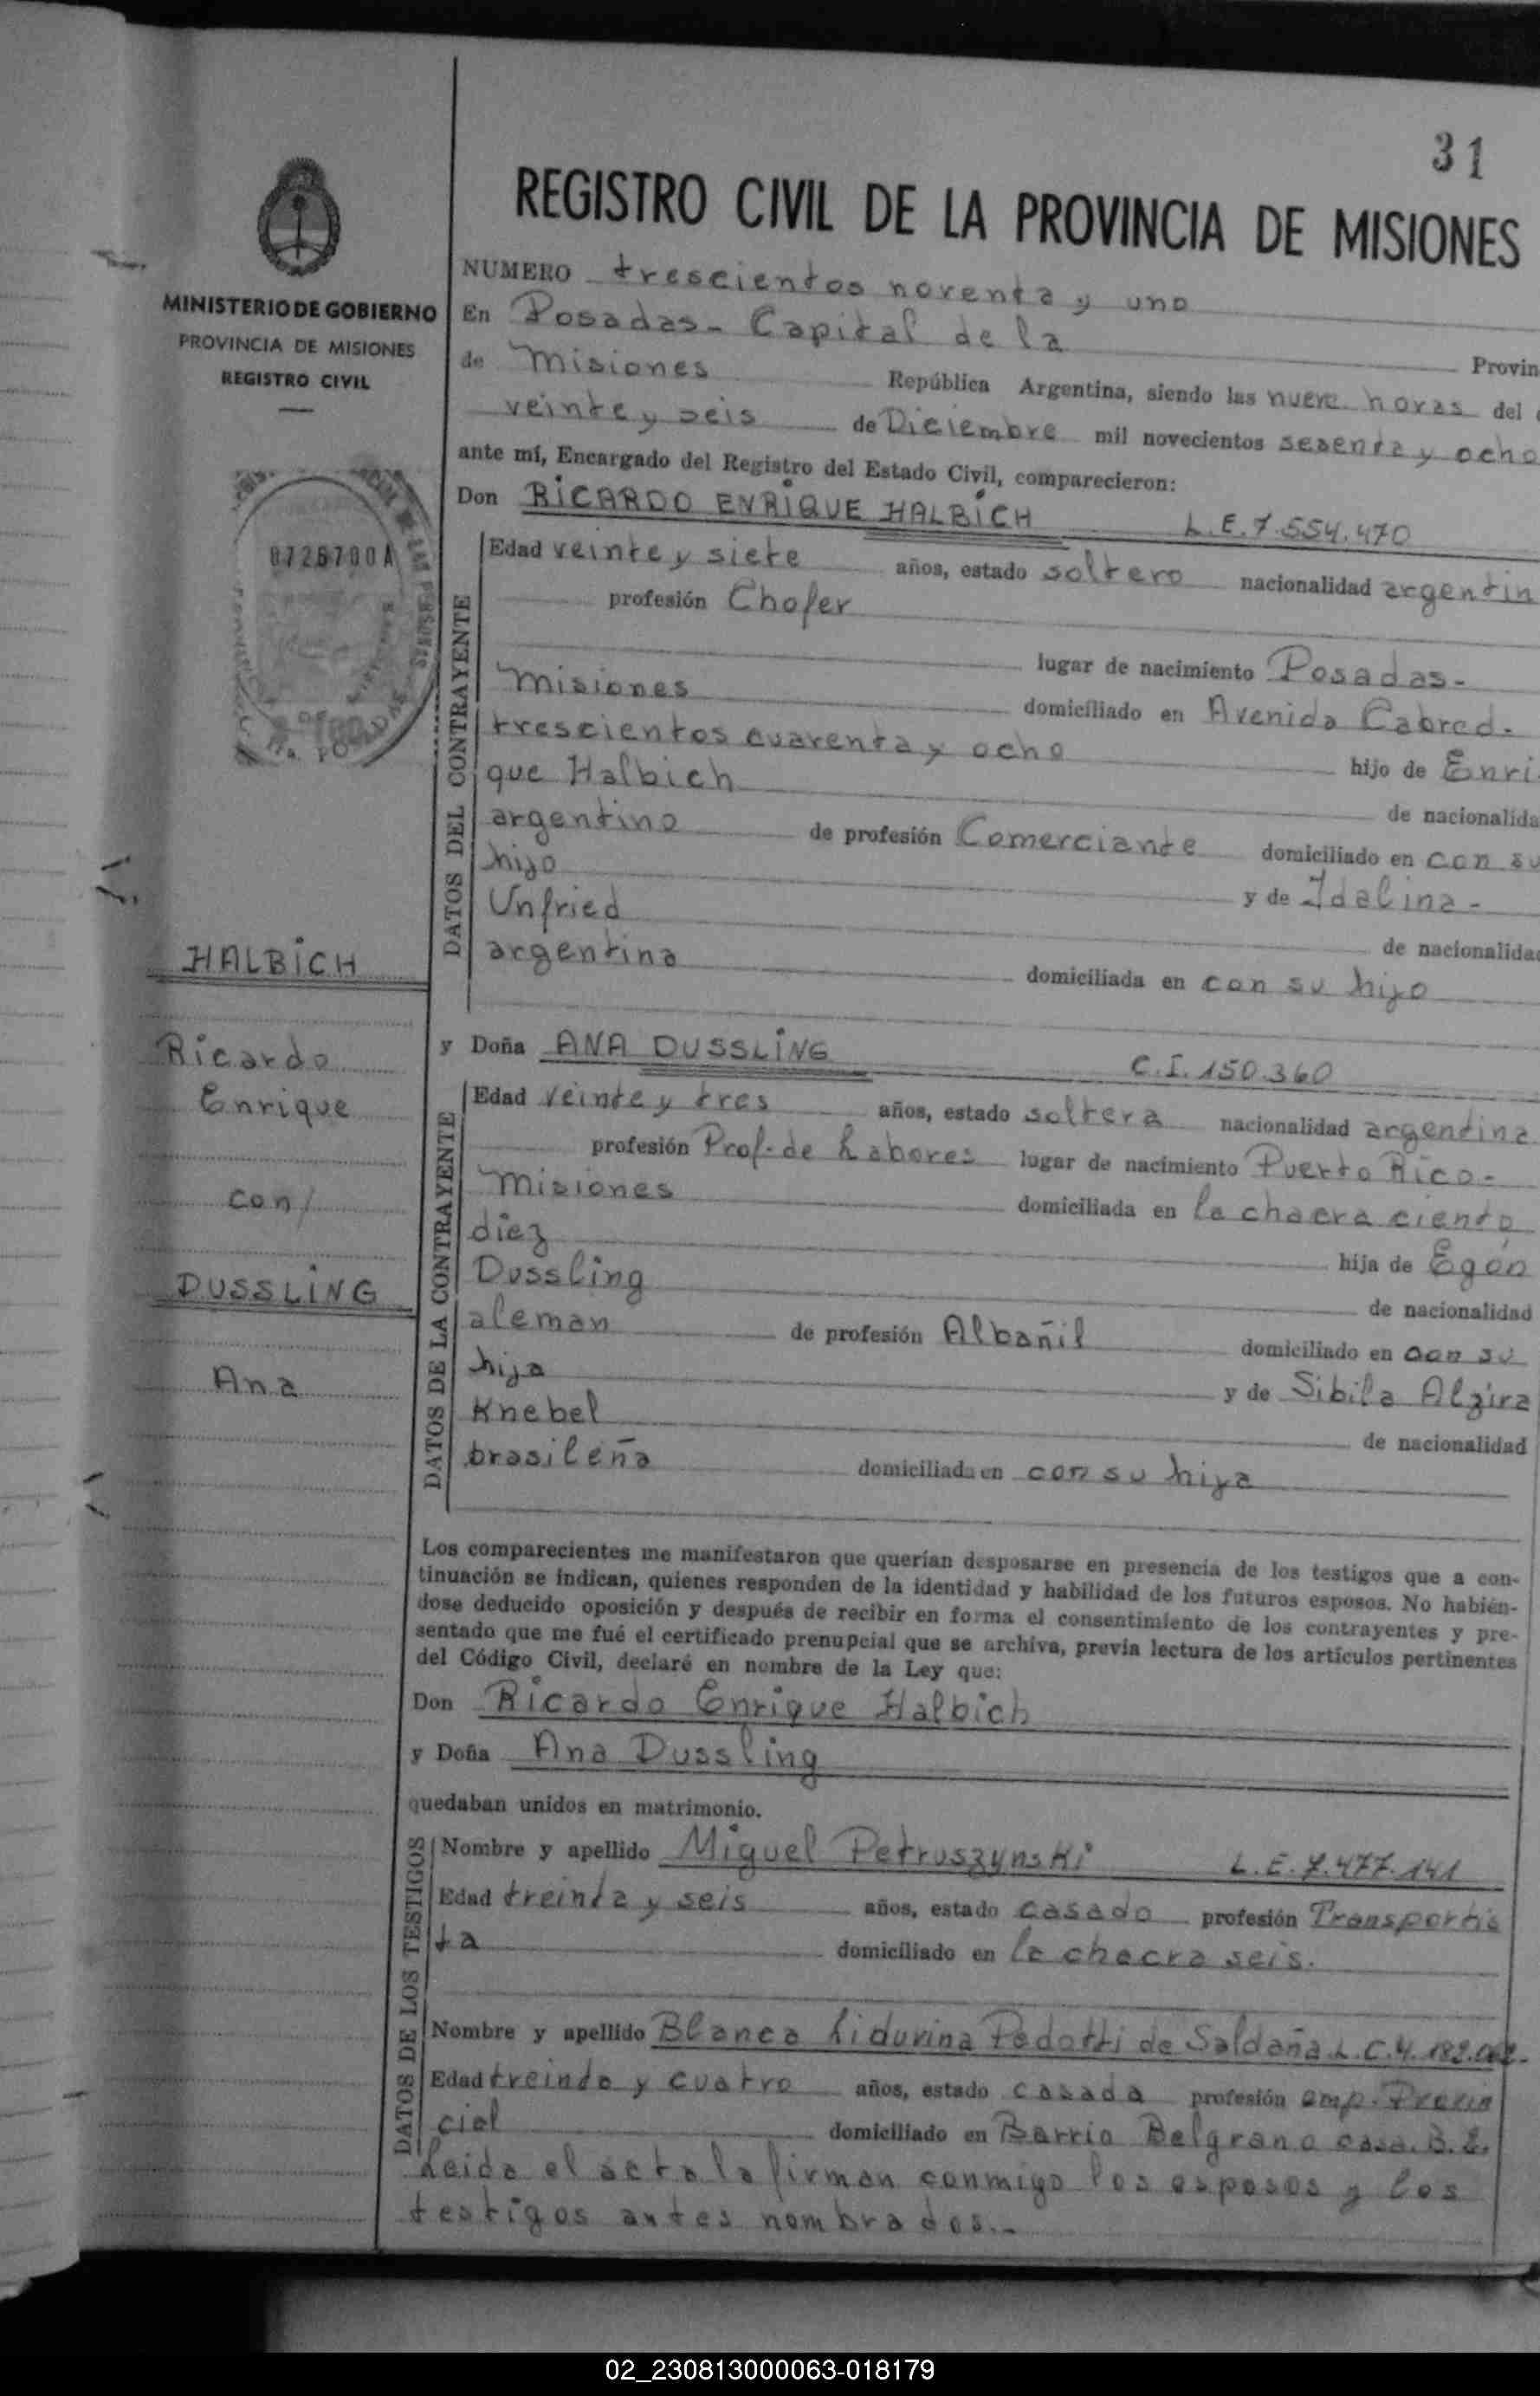 31
REGISTRO CIVIL DE LA PROVINCIA DE MISIONES
MINISTERIO DE GOBIERNO
PROVINCIA DE MISIONES
REGISTRO CIVIL
0726700A
HALBICH
Ricardo
Enrique
con/
DUSSLING
Ana
NUMERO trescientos noventa y uno
En Posadas - Capital de la Provin
de Misiones República Argentina, siendo las nueve horas del
veinte y seis de Diciembre mil novecientos sesenta y ocho
ante mí, Encargado del Registro del Estado Civil, comparecieron:
Don RICARDO ENRIQUE HALBICH L.E.7.554.470
DATOS DEL CONTRAYENTE
Edad veinte y siete años, estado soltero nacionalidad argentin
profesión Chofer
lugar de nacimiento Posadas-
Misiones domiciliado en Avenida Cabred-
trescientos cuarenta y ocho hijo de Enri-
que Halbich de nacionalida
argentino de profesión Comerciante domiciliado en con su
hijo y de Idalina-
Unfried de nacionalidad
argentina domiciliada en con su hijo
y Doña ANA DUSSLING C.I.150.360
DATOS DE LA CONTRAYENTE
Edad veinte y tres años, estado soltera nacionalidad argentina
profesión Prof. de Labores lugar de nacimiento Puerto Rico-
Misiones domiciliada en la chacra ciento
diez hija de Egón
Dussling de nacionalidad
aleman de profesión Albañil domiciliado en con su
hija y de Sibila Alzira
Knebel de nacionalidad
brasileña domiciliada en con su hija
Los comparecientes me manifestaron que querían desposarse en presencia de los testigos que a con-
tinuación se indican, quienes responden de la identidad y habilidad de los futuros esposos. No habién-
dose deducido oposición y después de recibir en forma el consentimiento de los contrayentes y pre-
sentado que me fué el certificado prenupcial que se archiva, previa lectura de los artículos pertinentes
del Código Civil, declaré en nombre de la Ley que:
Don Ricardo Enrique Halbich
y Doña Ana Dussling
quedaban unidos en matrimonio.
DATOS DE LOS TESTIGOS
Nombre y apellido Miguel Petruszynski L.E.7.477.141
Edad treinta y seis años, estado casado profesión Transportis
ta domiciliado en la chacra seis.
Nombre y apellido Blanca Liduvina Pedotti de Saldaña L.C.4.182.
Edad treinta y cuatro años, estado casada profesión emp. Provin
cial domiciliado en Barrio Belgrano casa
Leida el acta la firman conmigo los esposos y los
testigos antes nombrados.-
02_230813000063-018179